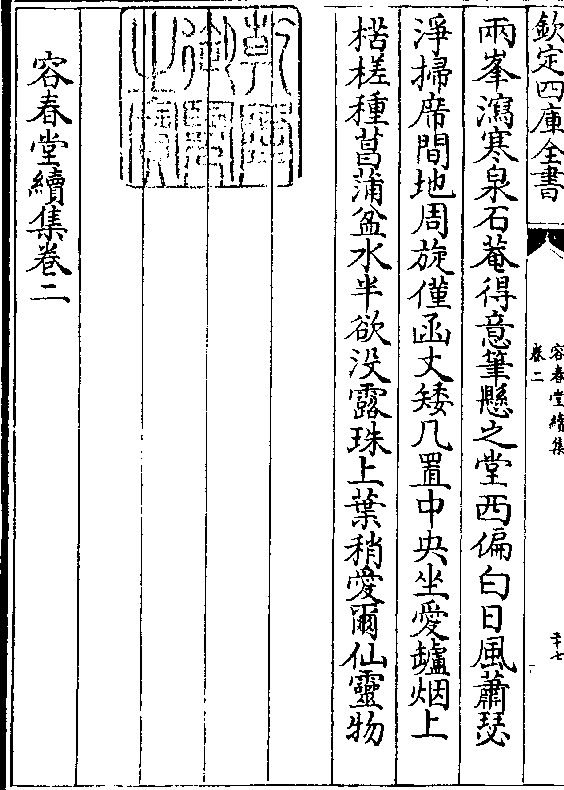 欽定四庫全書
容春堂續集
卷二
兩峯瀉寒泉石菴得意筆懸之堂西偏白日風蕭瑟
淨掃席間地周旋僅函丈矮几置中央坐愛罏烟上
楛槎種菖蒲盆水半欲没露珠上葉稍愛爾仙靈物
乾隆
御覽
之寶
容春堂續集卷二